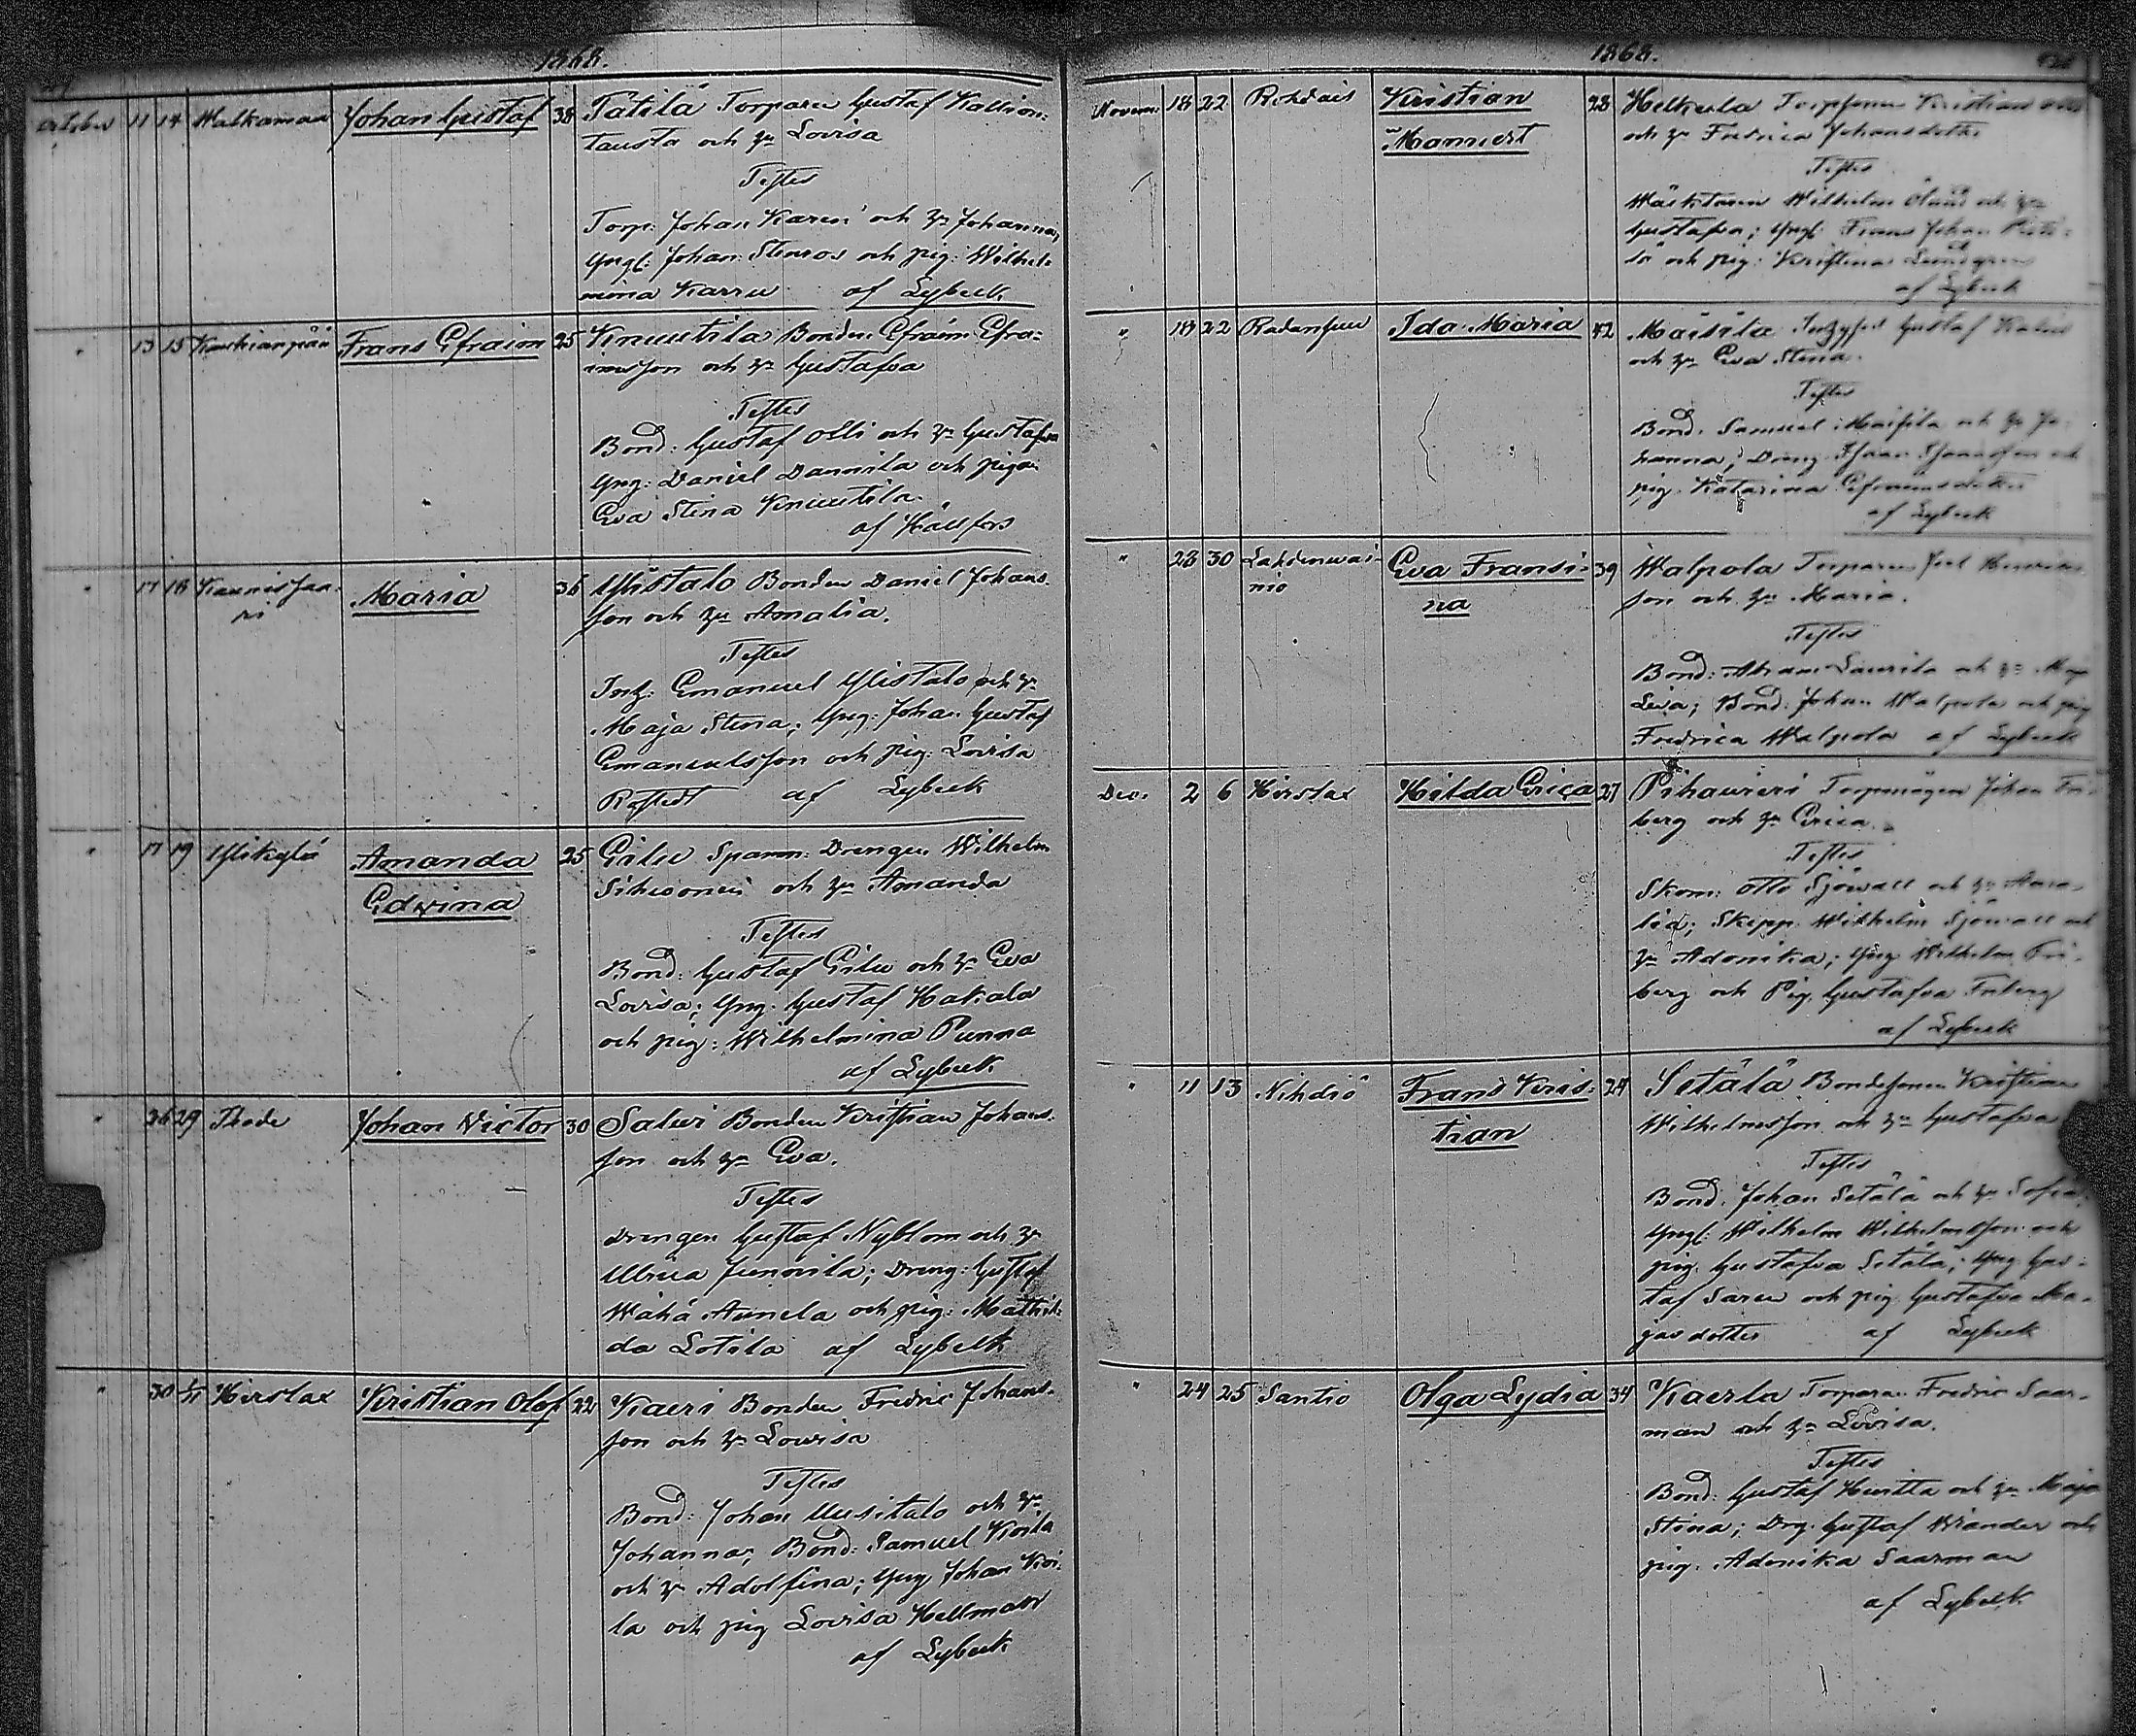 1868.
October 11 14 Walkamaa Johan Gustaf 38 Tatila Torparen Gustaf Kallion:
tausta och h:u Lovisa
Testes
Torp: Johan Karru och h:u Johanna,
Yngl: Johan Stenros och pig: Wilhel:
mina Karru af Lybeck
" 13 15 Frans Efraim 25 Knuutila Bonden Efraim Efra:
imsson och h:u Gustafva
Testes
Bond: Gustaf Olli och h:u Gustafva
Yng: Daniel Dannila och pigan
Eva Stina Knuutila.
af Hällfors
" 17 18 Kaunissaa:
ri
Maria 36 Ylistalo Bonden Daniel Johans:
son och h:u Amalia.
Testes
Inh: Emanuel Ylistalo och h:u
Maja Stina; Yng: Johan Gustaf
Emanuelsson och pig: Lovisa
af Lybeck
" 17 19 Ylikylä Amanda
Edvina
25 Eilu Spanm: Drengen Wilhelm
Sihvonen och h:u Amanda
Testes
Bond: Gustaf Eilu och h:u Eva
Lovisa; Yng. Gustaf Hakala
och pig: Wilhelmina Punna
af Lybeck
" 26 29 Johan Victor 30 Saluri Bonden Kristian Johans:
son och h:u Eva.
Testes
Drengen Gustaf Nyblom och h:u
Ulrica Junnila; Dreng: Gustaf
Wähä Aunela och pig: Mathil:
da Lotila af Lybeck
" 30 1/11 Hirslax Kristian Olof 22 Kaeri Bonden Fredric Johans:
son och h:u Lovisa
Testes
Bond: Johan Uusitalo och h:u
Johanna, Bond: Samuel Koila
och h:u Adolfina; Yng Johan Koi:
la och pig Lovisa Hellman
af Lybeck
1868.
Novem: 18 22 Rohdais Kristian
Mannert
23 Heikerla Torpsonen Kristian
och h:u Fredrica Johansdotter
Testes
Wilhelm Ölund och h:u
Gustafva; Yngl: Frans Johan
och pig: Kristina Lundgren
af Lybeck
" 18 22 Radansuu Ida Maria 42 Maisila Gustaf
och h:u Eva Stina.
Testes
Bond. Samuel Maisila och h:u Jo:
hanna; Dreng.
pig. Katarina Efraimsdotter
af Lybeck
" 28 30 Lahdenwai:
nio
Eva Fransi:
na
39 Walpola Torparen Joel Henriks:
son och h:u Maria.
Testes
Bond: Abram Laurila och h:u Maja
Lisa; Bond. Johan Walpola och pig
Fredrica Walpola af Lybeck
Dec. 2 6 Hirslax Hilda Erica 27 Pihaureri Torpmågen Johan Fri:
berg och h:u Erica.
Testes
Skom: Otto Sjöwall och h:u Ama:
lia; Skepp. Wilhelm Sjöwall och
h:u Adonika; Yng Wilhelm Fri:
berg och Pig. Gustafva Friberg
af Lybeck
" 11 13 Nihdiö Frans Kris:
tian
24 Setälä Bondesonen Kristian
Wilhelmsson och h:u Gustafva
Testes
Bond. Johan Setälä och h:u Sofia,
Yngl: Wilhelm Wilhelmsson och
pig. Gustafva Setälä; Yng Gus:
taf Saru och pig. Gustafva
dotter af Lybeck
" 24 25 Santio Olga Lydia 34 Kaerla Torparen Fredric Saar:
man och h:u Lovisa.
Testes
Bond: Gustaf Huitta och h:u Maja
Stina; Drg. Gustaf Wiander och
pig. Adonika Saarman
af Lybeck